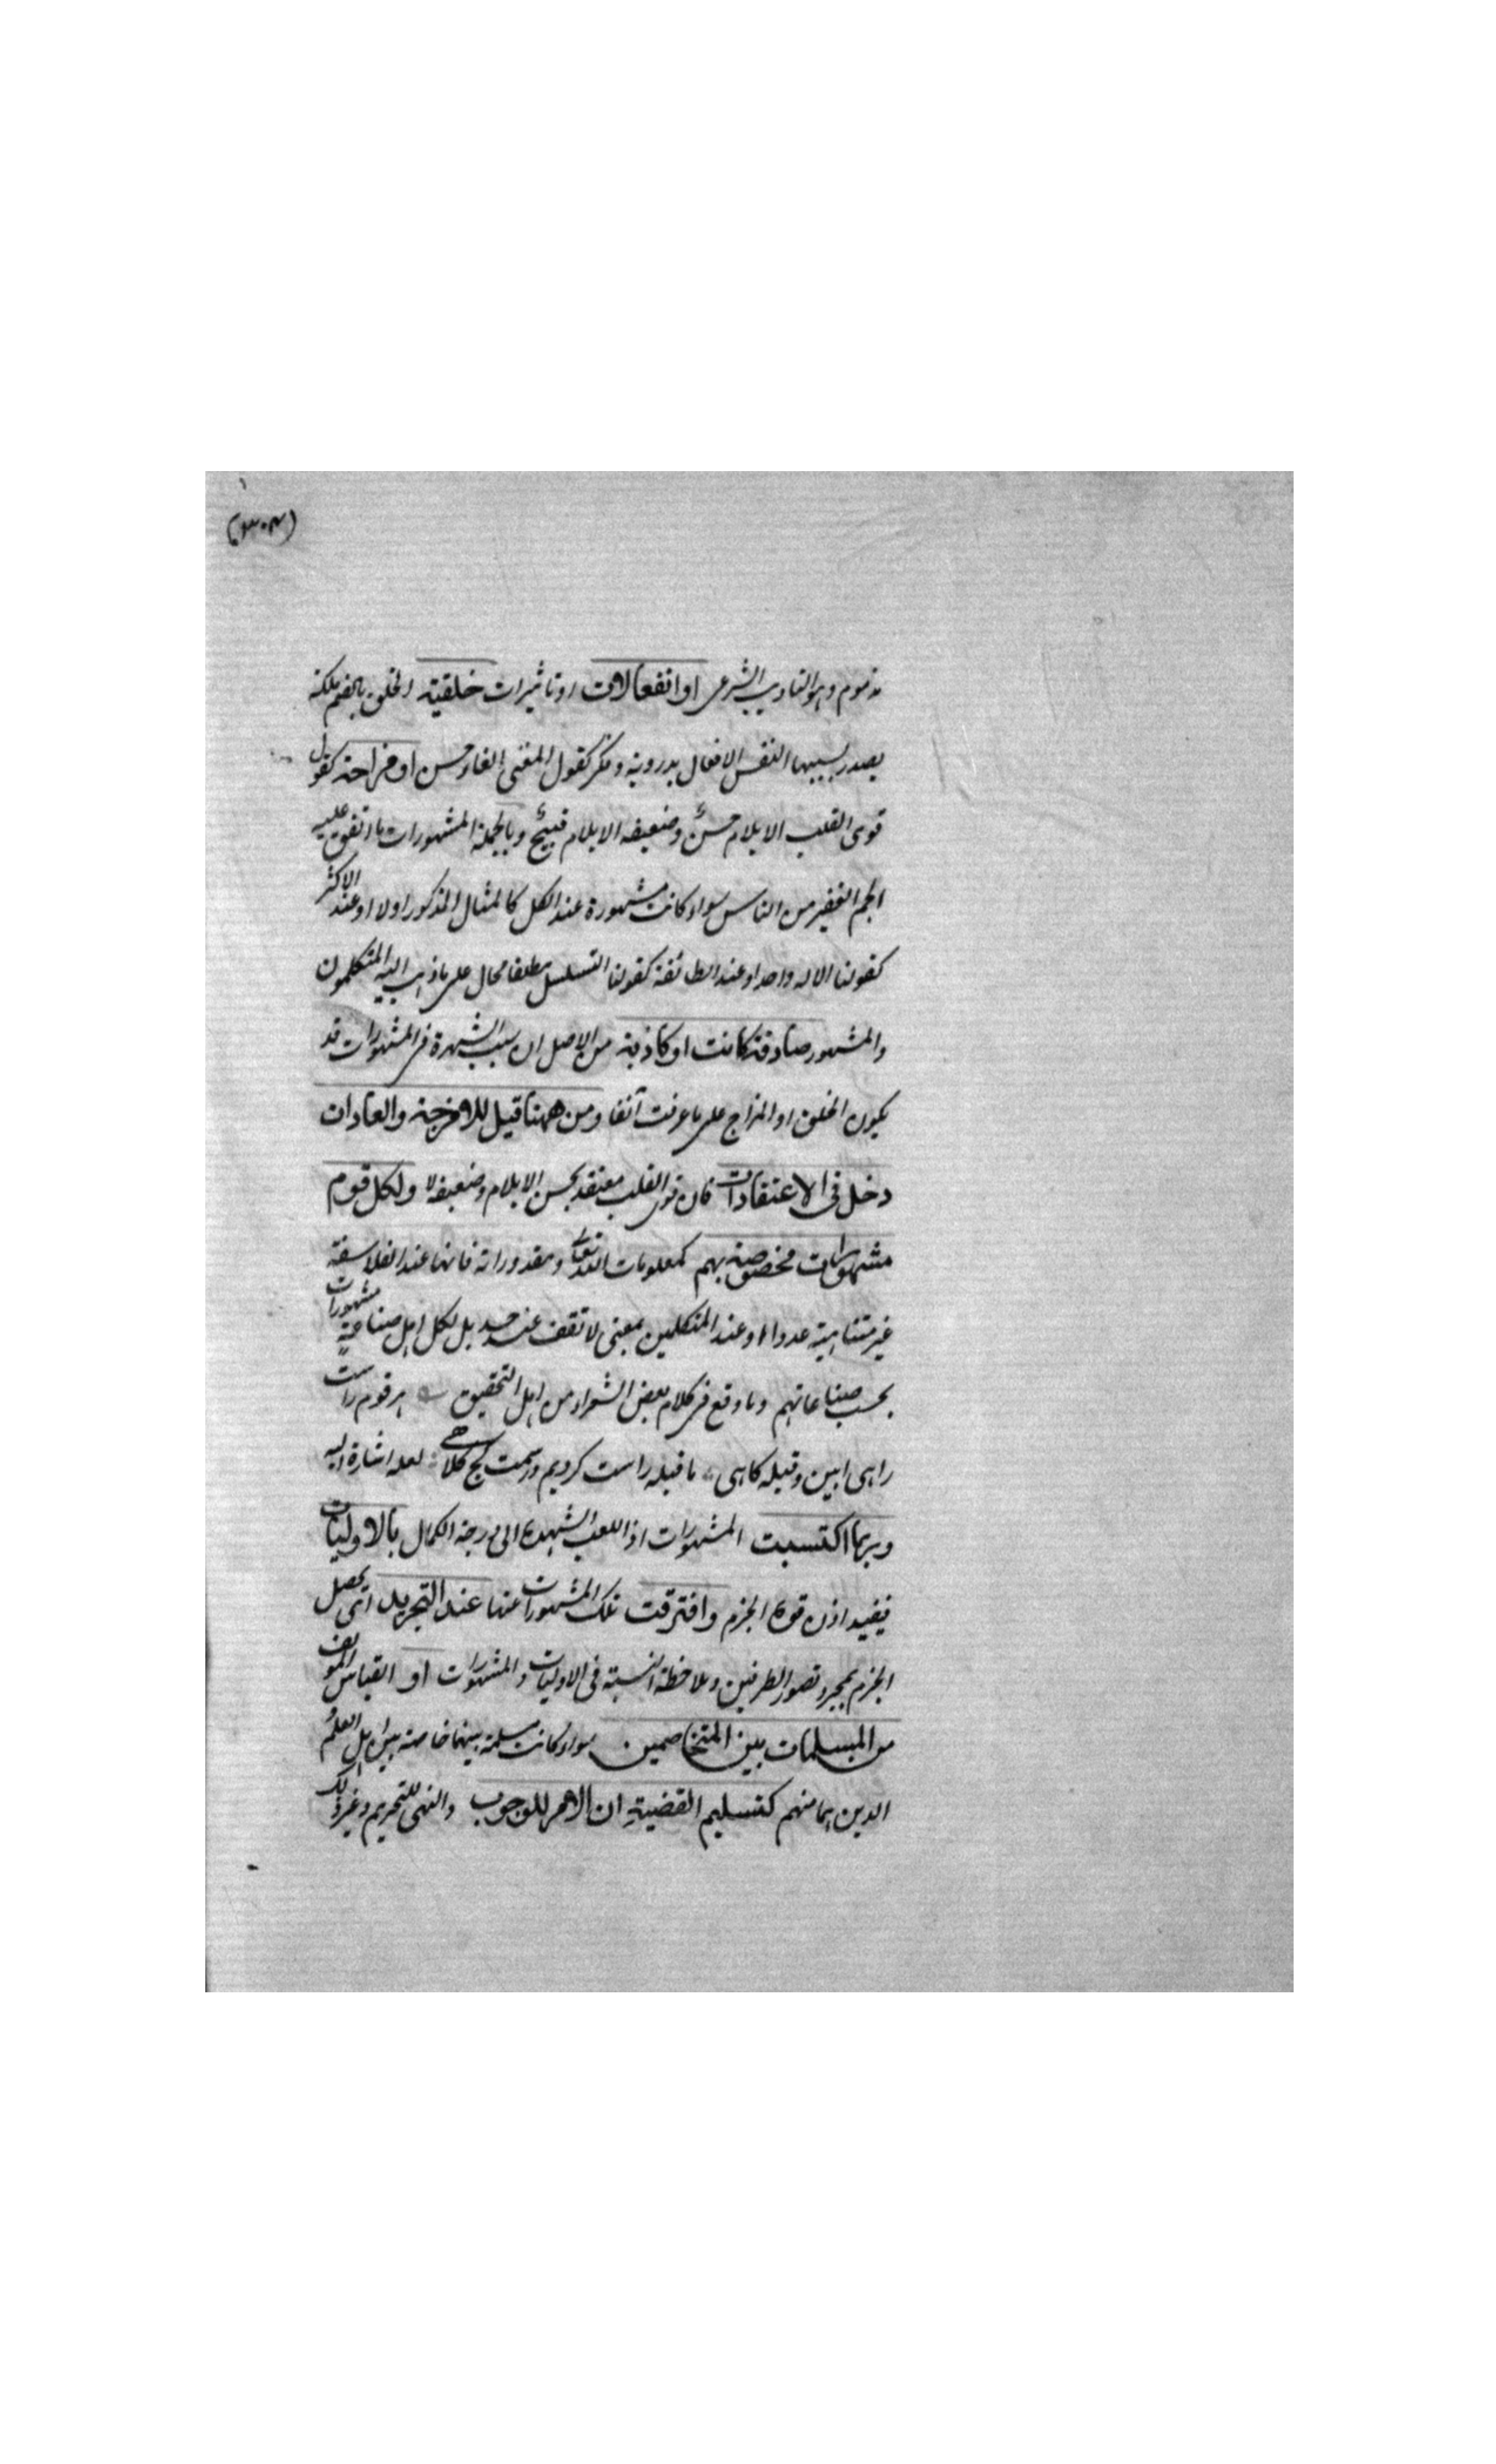 (٣٠٤)
مذموم وهو التاديب الشرعى او انفعالات او تاثيرات خلقية الخلق بالضم ملكة
يصدر بسببها النفس الافعال بدروية وفكر كقول المغنى الغناء حسن او مزاجية كقول
قوى القلب الايلام حسن وضعيفه الايلام قبيح وبالجملة المشهورات ما اتفق عليه
الجم الغفير من الناس سواء كانت مشهورة عند الكل كالمثال المذكور اولا او عند الاكثر
كقولنا الاله واحد او عند الطائفة كقولنا التسلسل مطلقا محال على ما ذهب اليه المتكلمون
والمشهور صادقة كانت او كاذبة من الاصل ان سبب الشهرة فى المشهورات قد
يكون الخلق او المزاج على ما عرفت آنفا ومن ههنا قيل للامزجة والعادات
دخل فى الاعتقادات فان قوى القلب معتقد بحسن الايلام وضعيفه لا ولكل قوم
مشهورات مخصوصة بهم كمعلومات الله تعالى ومقدوراته فانها عند الفلاسفة
غير متناهية عددا وعند المتكلمين بمعنى لا تقف عند حد بل لكل اهل صناعة مشهورات
بحسب صناعاتهم وما وقع فى كلام بعض الشعراء من اهل التحقيق هر قوم راست
راهى ابين وقبله كاهى ما قبله راست كرديم بر سمت كج كلاهى لعله اشارة اليه
وربما اكتسبت المشهورات اذا بلغت الشهرة الى درجة الكمال بالاوليات
فيفيد اذن قوة الجزم وافترقت تلك المشهورات عنها عند التجريد اى يحصل
الجزم بمجرد تصور الطرفين وملاحظة النسبة فى الاوليات والمشهورات او القياس المولف
من المسلمات بين المتخاصمين سواء كانت مسلمة بينهما خاصة بين اهل العلم
الدين هما منهم كتسليم القضية ان الامر للوجوب والنهى للتحريم وغير ذلك